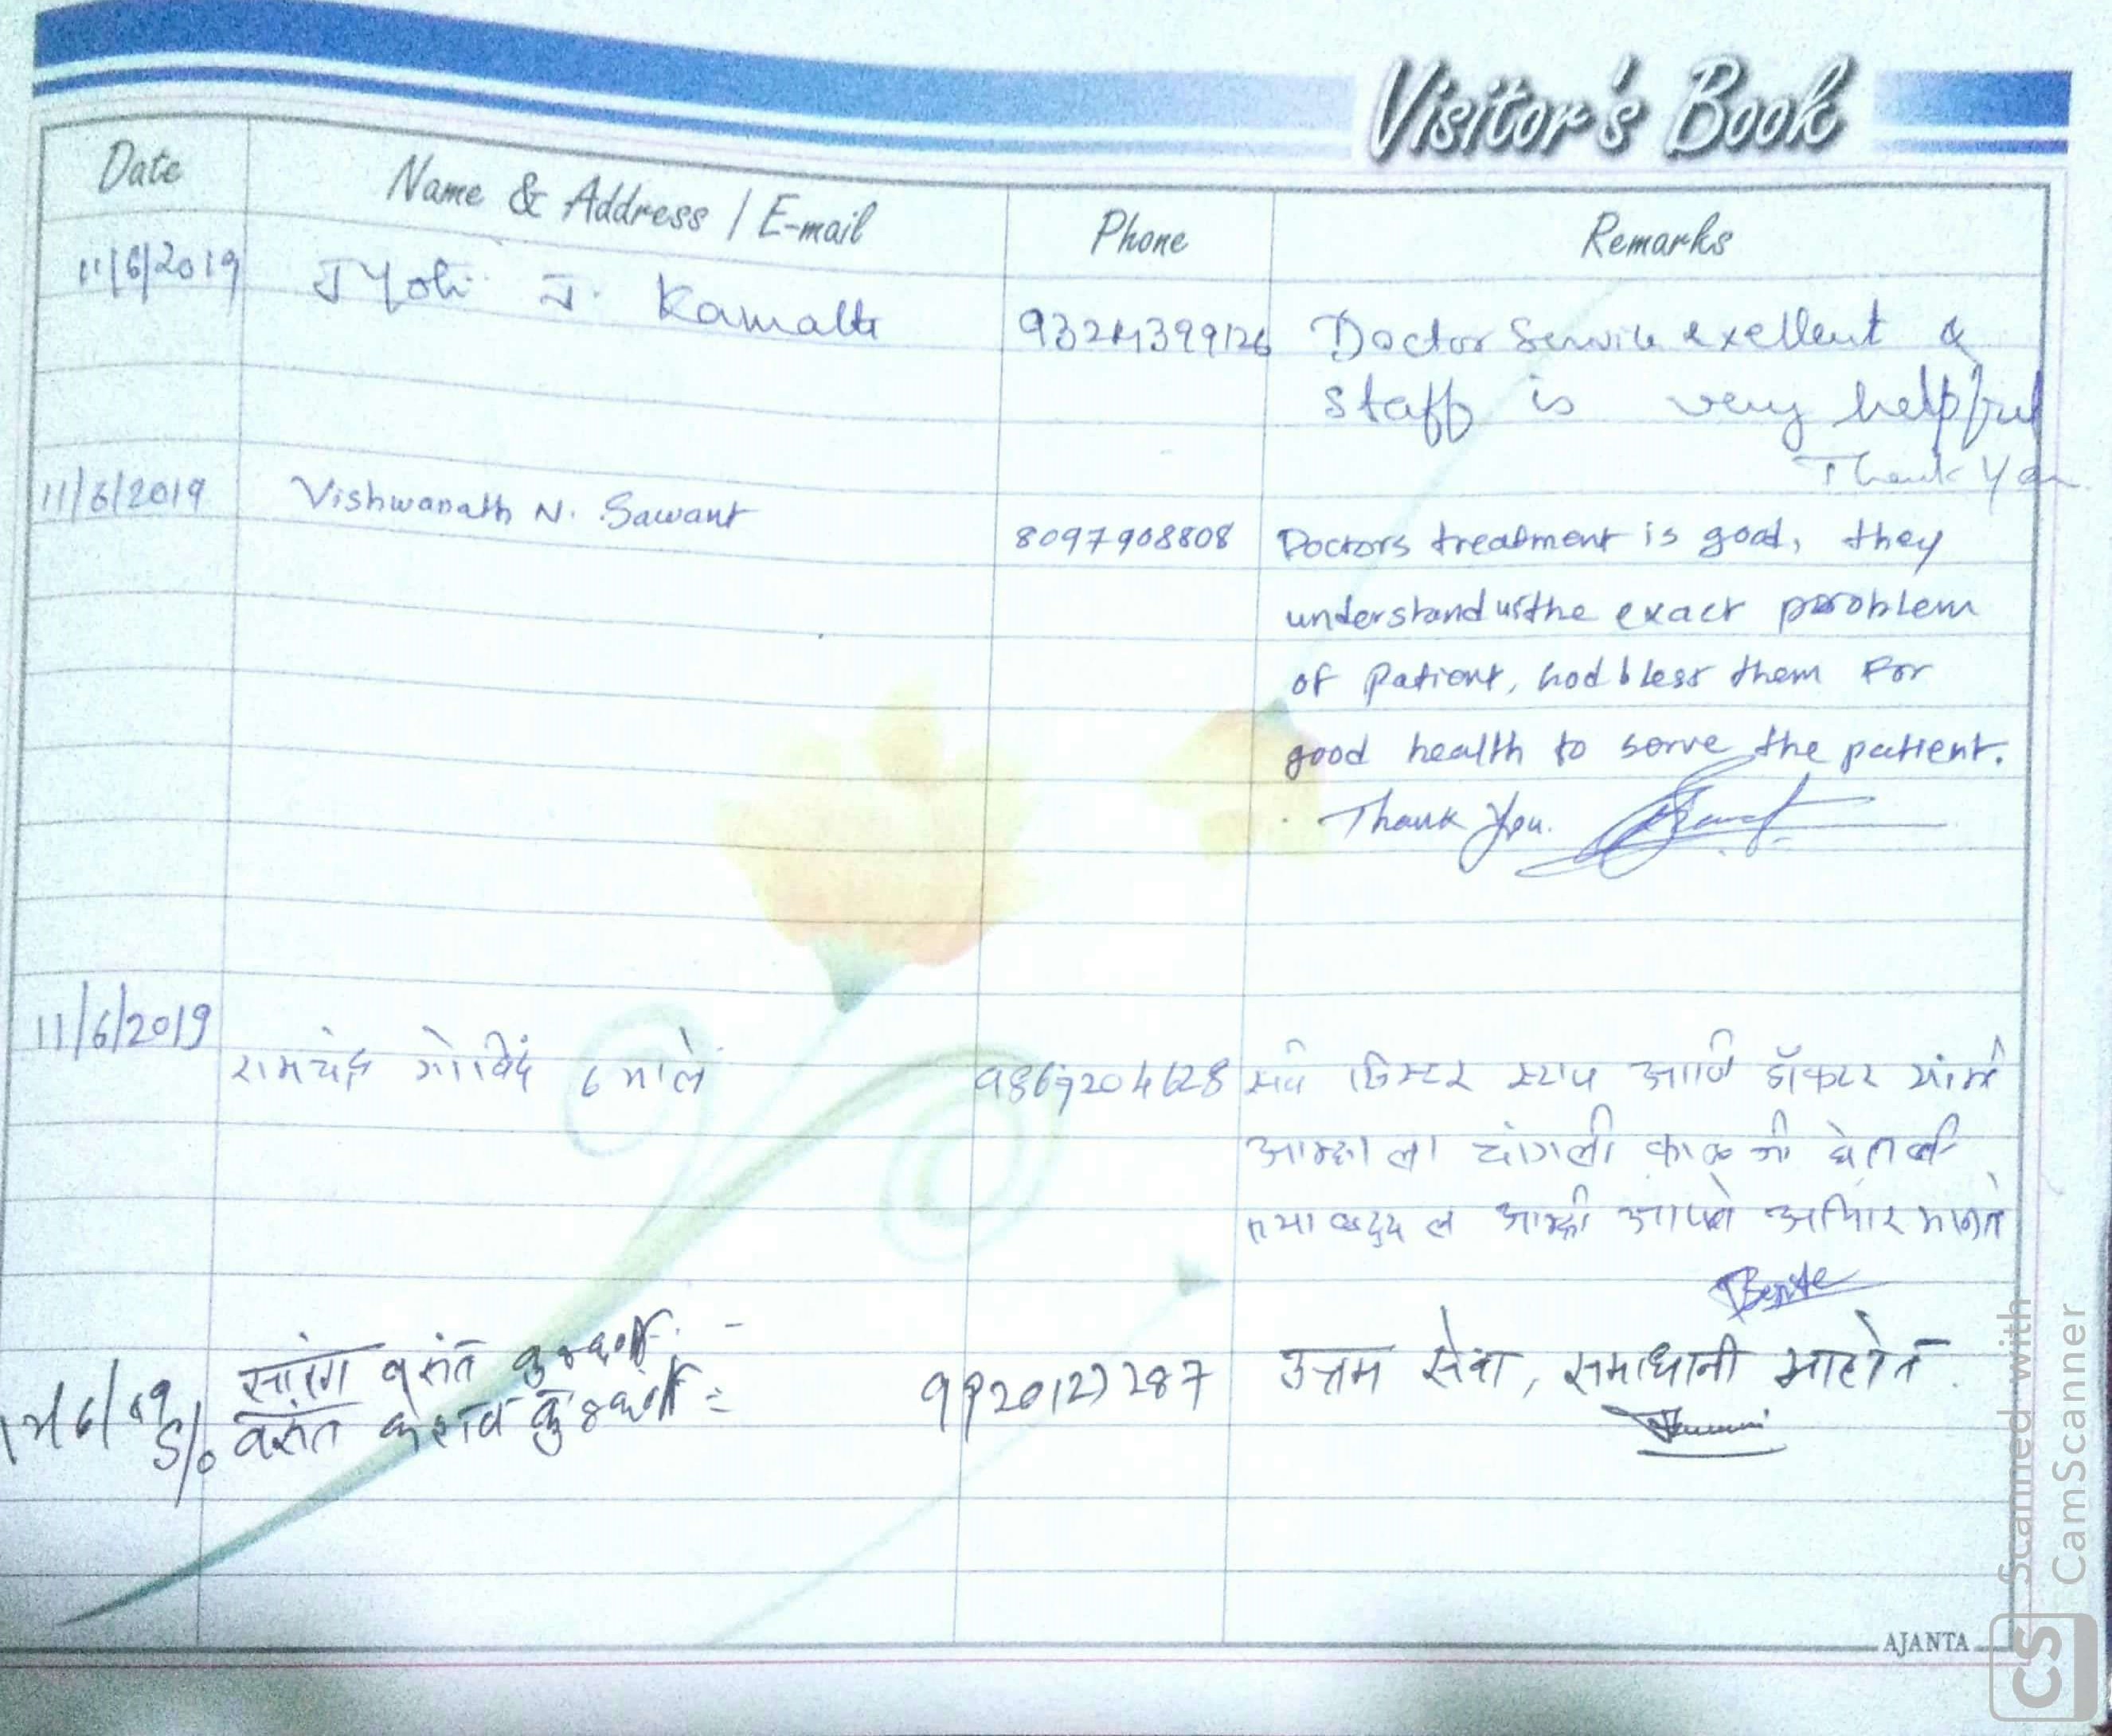 Visitor's Book
Date Name & Address / E-mail Phone Remarks
11/6/2019 Jyoti J. Kamath 9324399126 Doctor Service exellent &
staff is very helpful
Thank You
11/6/2019 Vishwanath N. Sawant 8097908808 Doctors treatment is good, they
understand us the exact problem
of patient, God bless them For
good health to serve the patient.
Thank you.
11/6/2019 रामचंद्र गोविंद 9869204628 सर्व सिस्टर स्टाप आणि डॉक्टर यांनी
आम्हाला चांगली काळजी घेतली
त्याबद्दल आम्ही आपले आभार मानते
सारंग वसंत
S/o वसंत केशव 9920127287 उत्तम सेवा, समाधानी आहोत.
AJANTA
Scanned with
CamScanner
CS